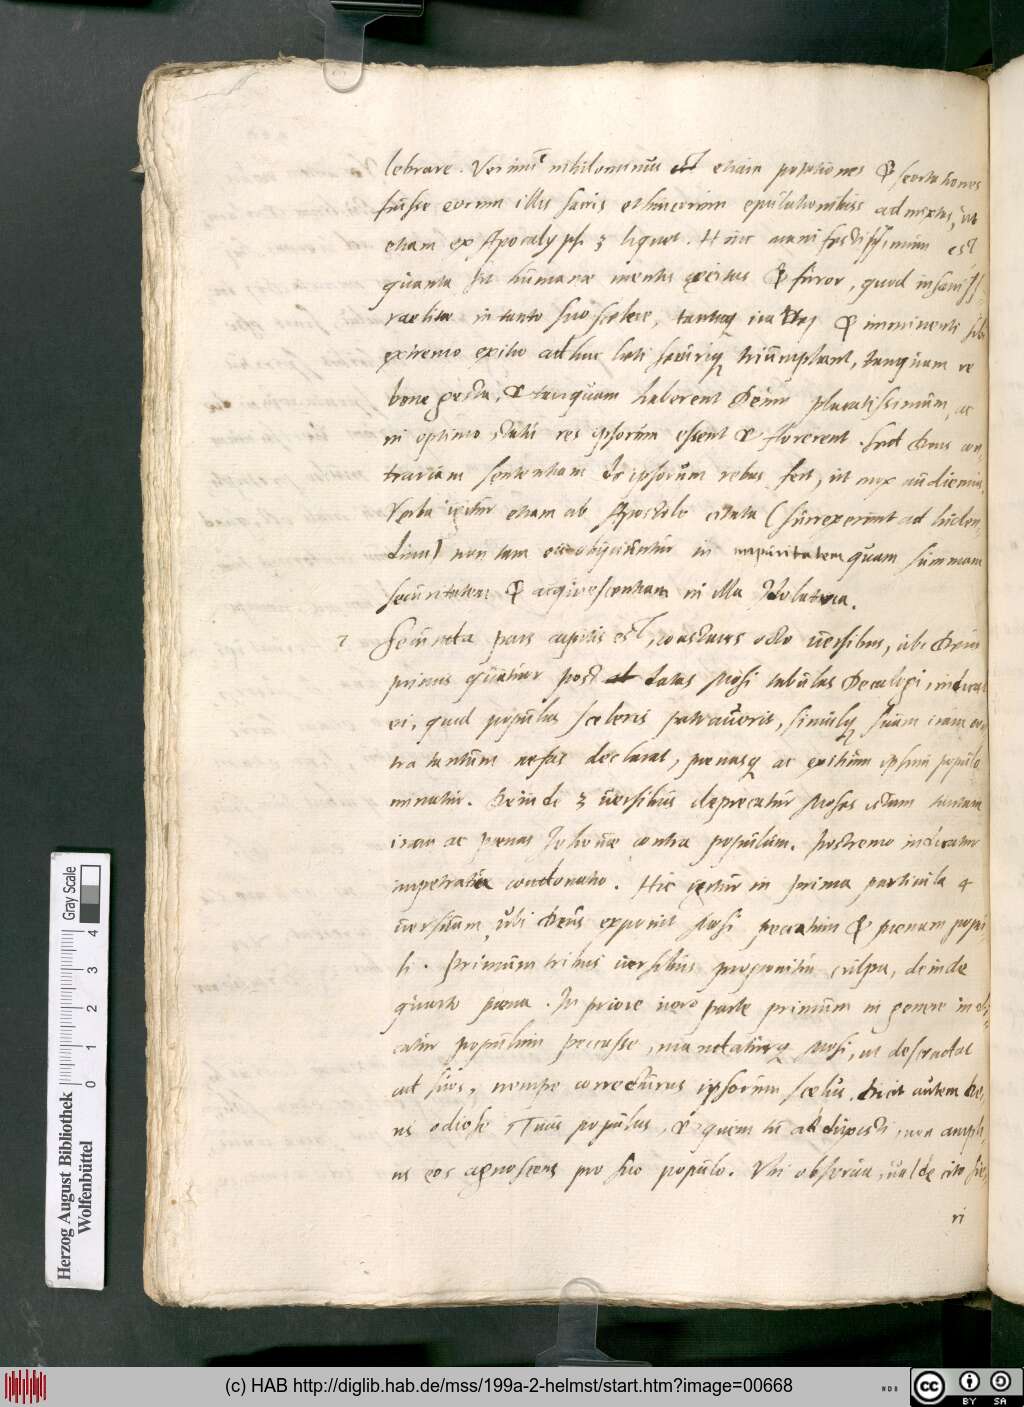 lebrare. Verum nihilominus etiam potationes & scortationes
fuisse eorum illis sacris ethnicorum epulationibus admixtas, ut
etiam ex Apocalyps. 3 liquet. Hinc manifestissimum est
quanta sit humanae mentis cæcitas & furor, quod insani Iss-
raelitae in tanto suo scelere, tantaq ira Dei & imminenti sibi
extremo exitio adhuc læti securiq triumphant, tanquam re
bene gesta, & tanquam haberent Deum placatissimum, ac
in optimo statu res ipsorum essent & florerent. Sed Deus con-
trariam sententiam de ipsorum rebus fert, ut mox audiemus.
Verba igitur etiam ab Apostolo citata (surrexerunt ad luden-
dum) non tam in impuritatem quam summam
securitatem & acquiescentiam in illa Idolatria.
2 Secunda pars capitis est, constans octo versibus, ubi Deus
primus post datas Mosi tabulas Decalogi, indicat
ei, quod populus sceleris patraverit, simulq suam iram con-
tra tantum nefas declarat, poenasq ac exitium ipsum populo
minatur. Deinde 3 versibus deprecatur Moses istam
iram ac poenas Jehovæ contra populum. Postremo indicatur
impetrata condonatio. Hic igitur in prima particula 4
versuum, ubi Deus exponit Mosi peccatum & poenam popu-
li. Primum tribus versibus proponitur culpa, deinde
quarto poena. In priore vero parte primum in genere indi-
catur populum peccasse, mandaturq Mosi, ut descendat
ad suos, nempe correcturus ipsorum scelus. Dicit autem De-
us odiose Tuus populus, & quem tu adduxisti, non ampli-
us eos agnoscens pro suo populo. Ubi observa, valde cito fie-
ri
Gray Scale
0 1 2 3 4
Herzog August Bibliothek
Wolfenbüttel
(c) HAB http://diglib.hab.de/mss/199a-2-helmst/start.htm?image=00668
cc BY SA